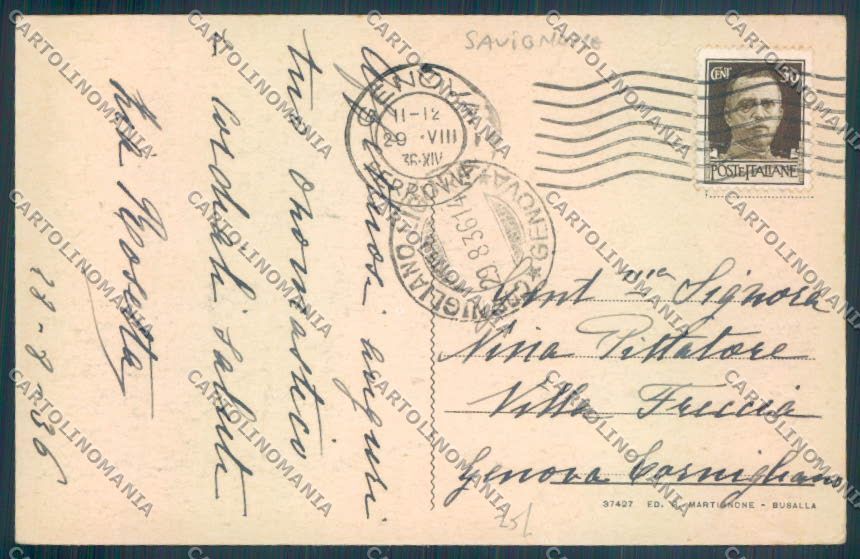 SAVIGNONE
CENT 30
POSTE ITALIANE
GENOVA
11-12
29 · VIII
36·XIV
FERROVIA
GENOVA
CORNIGLIANO
29.8.36.14
affettuosi auguri
tuo onomastico
e cordiali saluti
Rosetta
28-8-36
Gent ma Signora
Nina Pittatore
Villa Friccia
Genova Cornigliano
37427 ED. MARTIGNONE - BUSALLA
CARTOLINOMANIA